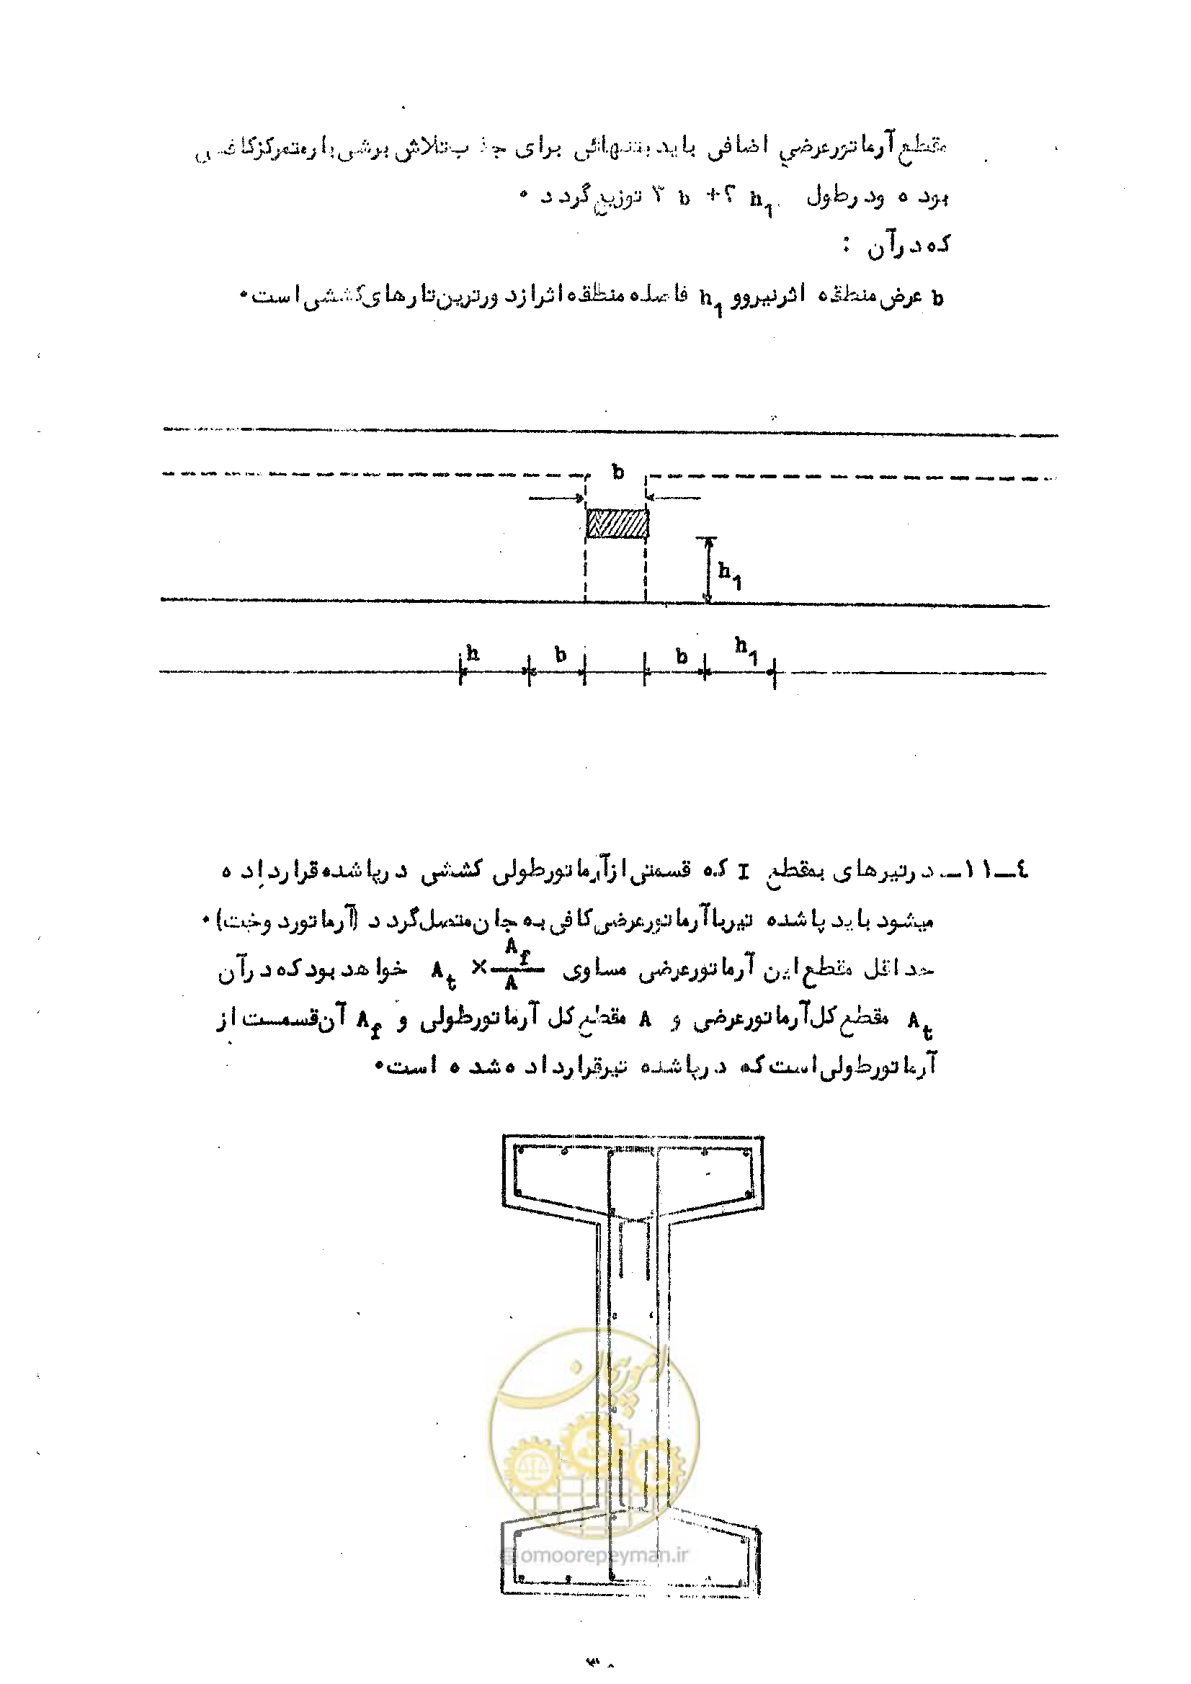 مقطع آرماتور عرضي اضافی باید بتنهائی برای جذب تلاش برشی بار متمرکز کافی
بوده و در طول ۳ b + ۲ h1 توزیع گردد .
که در آن :
b عرض منطقه اثر نیرو و h1 فاصله منطقه اثر از دورترین تارهای کششی است .
b
h1
h b b h1
٤ـ١١ـ در تیرهای بمقطع I که قسمتی از آرماتور طولی کششی در پاشنه قرار داده
میشود باید پاشنه تیر با آرماتور عرضی کافی به جان متصل گردد (آرماتور دوخت) .
حداقل مقطع این آرماتور عرضی مساوی At × Af / A خواهد بود که در آن
At مقطع کل آرماتور عرضی و A مقطع کل آرماتور طولی و Af آن قسمت از
آرماتور طولی است که در پاشنه تیر قرار داده شده است .
امور پیمان
@omoorepeyman.ir
۳۰